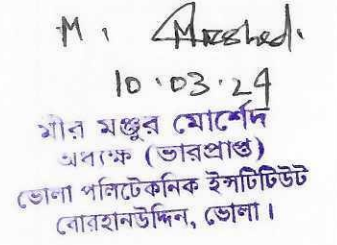 M. Morshed.
10.03.24
মীর মঞ্জুর মোর্শেদ
অধ্যক্ষ (ভারপ্রাপ্ত)
ভোলা পলিটেকনিক ইন্সটিটিউট
বোরহানউদ্দিন, ভোলা।